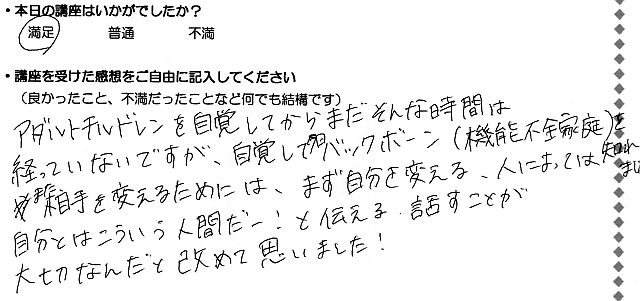 ・本日の講座はいかがでしたか？
満足 普通 不満
・講座を受けた感想をご自由に記入してください
（良かったこと、不満だったことなど何でも結構です）
アダルトチルドレンを自覚してからまだそんな時間は
経っていないですが、自覚して バックボーン（機能不全家庭）を知れ
相手を変えるためには、まず自分を変える、人によっては
自分とはこういう人間だー！と伝える 話すことが
大切なんだと改めて思いました！